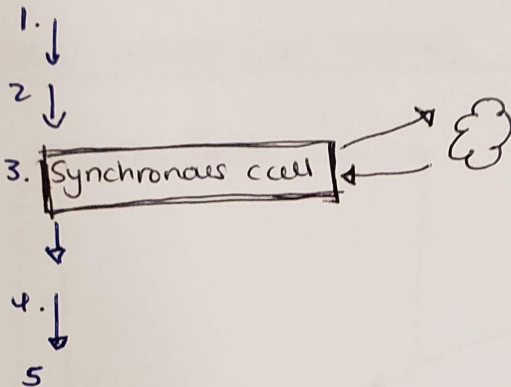 1.
2
3. Synchronous call
4.
5